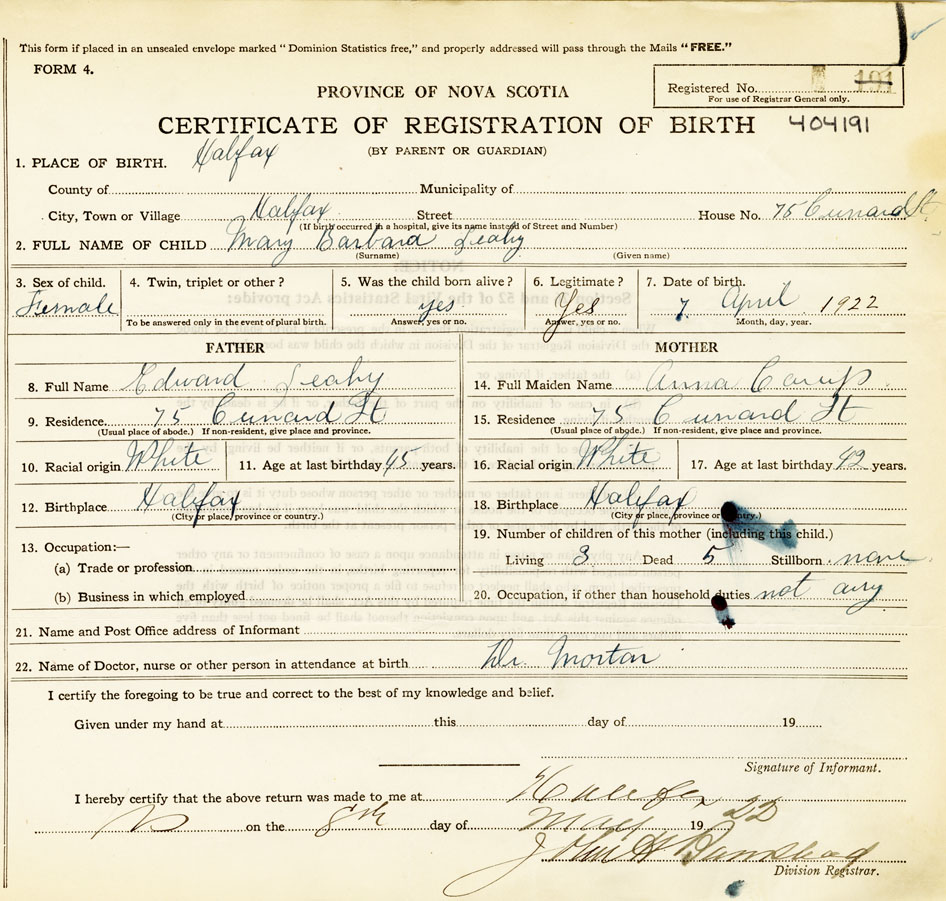 This form if placed in an unsealed envelope marked "Dominion Statistics free," and properly addressed will pass through the Mails "FREE."
FORM 4.
Registered No. 191
For use of Registrar General only.
PROVINCE OF NOVA SCOTIA
CERTIFICATE OF REGISTRATION OF BIRTH 404191
(BY PARENT OR GUARDIAN)
1. PLACE OF BIRTH. Halifax
County of Municipality of
City, Town or Village Halifax Street House No. 75 Cunard St
(If birth occurred in a hospital, give its name instead of Street and Number)
2. FULL NAME OF CHILD Mary Barbara Leahy
(Surname) (Given name)
3. Sex of child. 4. Twin, triplet or other? 5. Was the child born alive? 6. Legitimate? 7. Date of birth.
Female yes Yes 7 April 1922
To be answered only in the event of plural birth. Answer, yes or no. Answer, yes or no. Month, day, year.
FATHER MOTHER
8. Full Name Edward Leahy 14. Full Maiden Name Anna
9. Residence. 75 Cunard St 15. Residence 75 Cunard St
(Usual place of abode.) If non-resident, give place and province. (Usual place of abode.) If non-resident, give place and province.
10. Racial origin White 11. Age at last birthday 45 years. 16. Racial origin White 17. Age at last birthday 42 years.
12. Birthplace Halifax 18. Birthplace Halifax
(City or place, province or country.) (City or place, province or country.)
13. Occupation:— 19. Number of children of this mother (including this child.)
(a) Trade or profession Living 3 Dead 5 Stillborn none
(b) Business in which employed 20. Occupation, if other than household duties not any
21. Name and Post Office address of Informant
22. Name of Doctor, nurse or other person in attendance at birth Dr. Morton
I certify the foregoing to be true and correct to the best of my knowledge and belief.
Given under my hand at this day of 19
Signature of Informant.
I hereby certify that the above return was made to me at Halifax
on the 8th day of May 19 22
John H
Division Registrar.